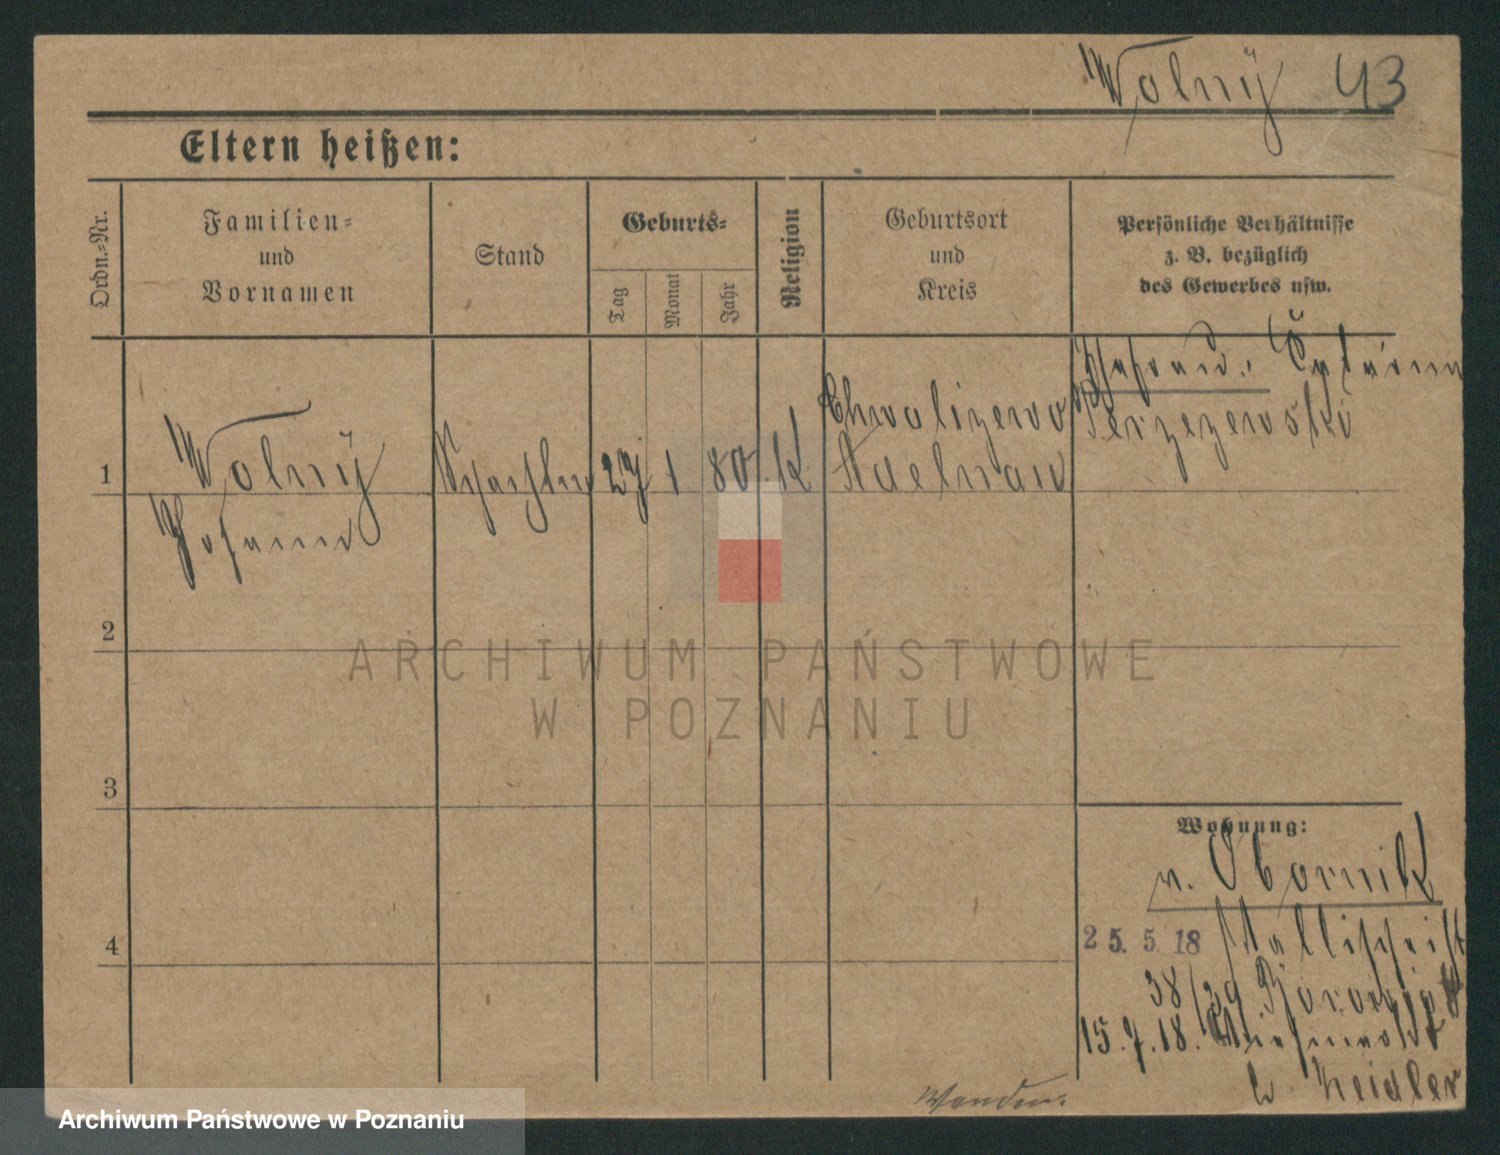 Wolny 43
Eltern heißen:
Ordn.=Nr.
Familien=
und
Vornamen
Stand
Geburts=
Tag
Monat
Jahr
Religion
Geburtsort
und
Kreis
Persönliche Verhältnisse
z. B. bezüglich
des Gewerbes usw.
1
Wolnÿ
Johann
27 1 80 K
Chwalizewo
Adelnau
2
3
4
Wohnung:
v. Obornik
25. 5. 18 Wallischei
38/39
15. 7. 18.
b Zeidler
ARCHIWUM PAŃSTWOWE
W POZNANIU
Archiwum Państwowe w Poznaniu